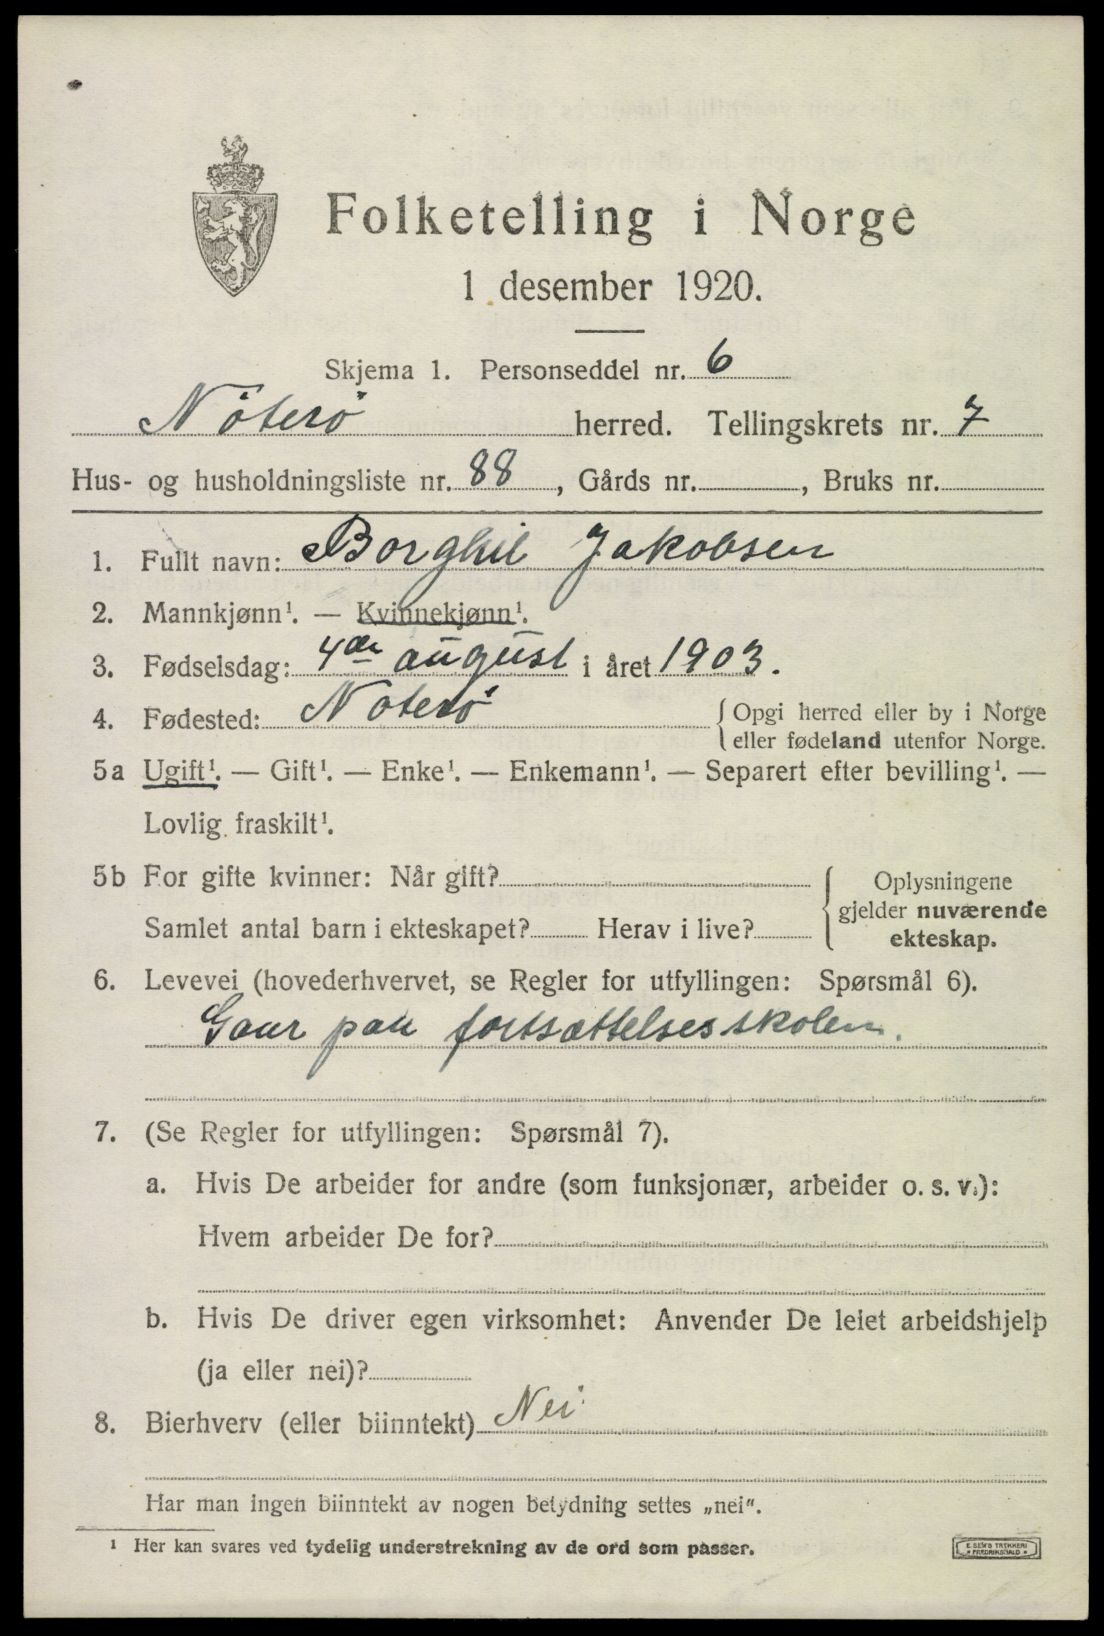 Folketelling i Norge
1 desember 1920.
Skjema 1. Personseddel nr. 6
Nöterö herred. Tellingskrets nr. 7
Hus- og husholdningsliste nr. 88, Gårds nr. , Bruks nr.
1. Fullt navn: Borghil Jakobsen
2. Mannkjønn¹. — Kvinnekjønn¹.
3. Fødselsdag: 4de august i året 1903.
4. Fødested: Noterö {Opgi herred eller by i Norge
eller fødeland utenfor Norge.
5a Ugift¹. — Gift¹. — Enke¹. — Enkemann¹. — Separert efter bevilling¹. —
Lovlig fraskilt¹.
5b For gifte kvinner: Når gift? { Oplysningene
gjelder nuværende
Samlet antal barn i ekteskapet? Herav i live?
ekteskap.
6. Levevei (hovederhvervet, se Regler for utfyllingen: Spørsmål 6).
Gaar paa fortsættelsesskolen.
7. (Se Regler for utfyllingen: Spørsmål 7).
a. Hvis De arbeider for andre (som funksjonær, arbeider o. s. v.):
Hvem arbeider De for?
b. Hvis De driver egen virksomhet: Anvender De leiet arbeidshjelp
(ja eller nei)?
8. Bierhverv (eller biinntekt) Nei
Har man ingen biinntekt av nogen betydning settes „nei".
¹ Her kan svares ved tydelig understrekning av de ord som passer.
E. SEM'S TRYKKERI
FREDRIKSHALD